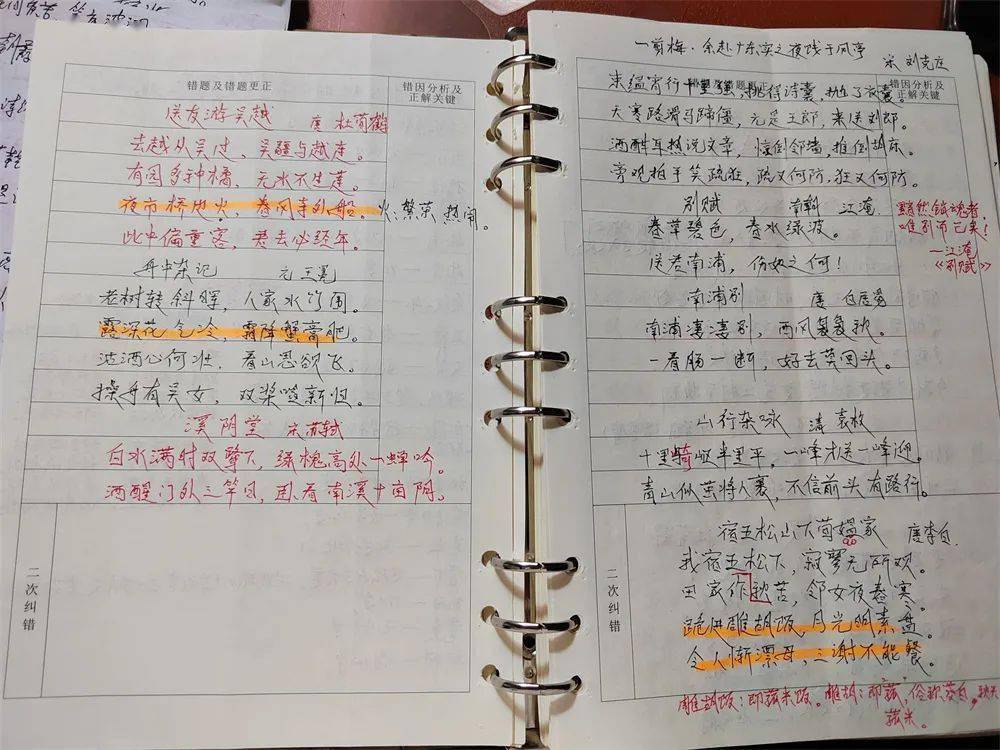 错题及错题更正
错因分析及
正解关键
送友游吴越 唐 杜荀鹤
去越从吴过，吴疆与越连。
有园多种橘，无水不生莲。
夜市桥边火，春风寺外船。火：繁荣、热闹。
此中偏重客，君去必经年。
舟中杂记 元 王冕
老树转斜晖，人家水竹围。
露深花气冷，霜降蟹膏肥。
沽酒心何壮，看山思欲飞。
操舟有吴女，双桨唱新归。
溪阴堂 宋 苏轼
白水满时双鹭下，绿槐高处一蝉吟。
酒醒门外三竿日，卧看南溪十亩阴。
二次纠错
一剪梅·余赴广东实之夜饯于风亭
宋 刘克庄
错题及错题更正
错因分析及
正解关键
束缊宵行十里强，挑得诗囊，抛了衣囊。
天寒路滑马蹄僵，元是王郎，来送刘郎。
酒酣耳热说文章，惊倒邻墙，推倒胡床。
旁观拍手笑疏狂，疏又何妨，狂又何妨。
别赋 南朝 江淹
春草碧色，春水绿波。
送君南浦，伤如之何！
黯然销魂者，
唯别而已矣！
—江淹
《别赋》
南浦别 唐 白居易
南浦凄凄别，西风袅袅秋。
一看肠一断，好去莫回头。
山行杂咏 清 袁枚
十里崎岖半里平，一峰才送一峰迎。
青山似茧将人裹，不信前头有路行。
宿五松山下荀媪家 唐 李白
我宿五松下，寂寥无所欢。
田家作秋苦，邻女夜舂寒。
跪进雕胡饭，月光明素盘。
令人惭漂母，三谢不能餐。
雕胡饭：即菰米饭。雕胡：即菰，俗称茭白，
菰米。
二次纠错